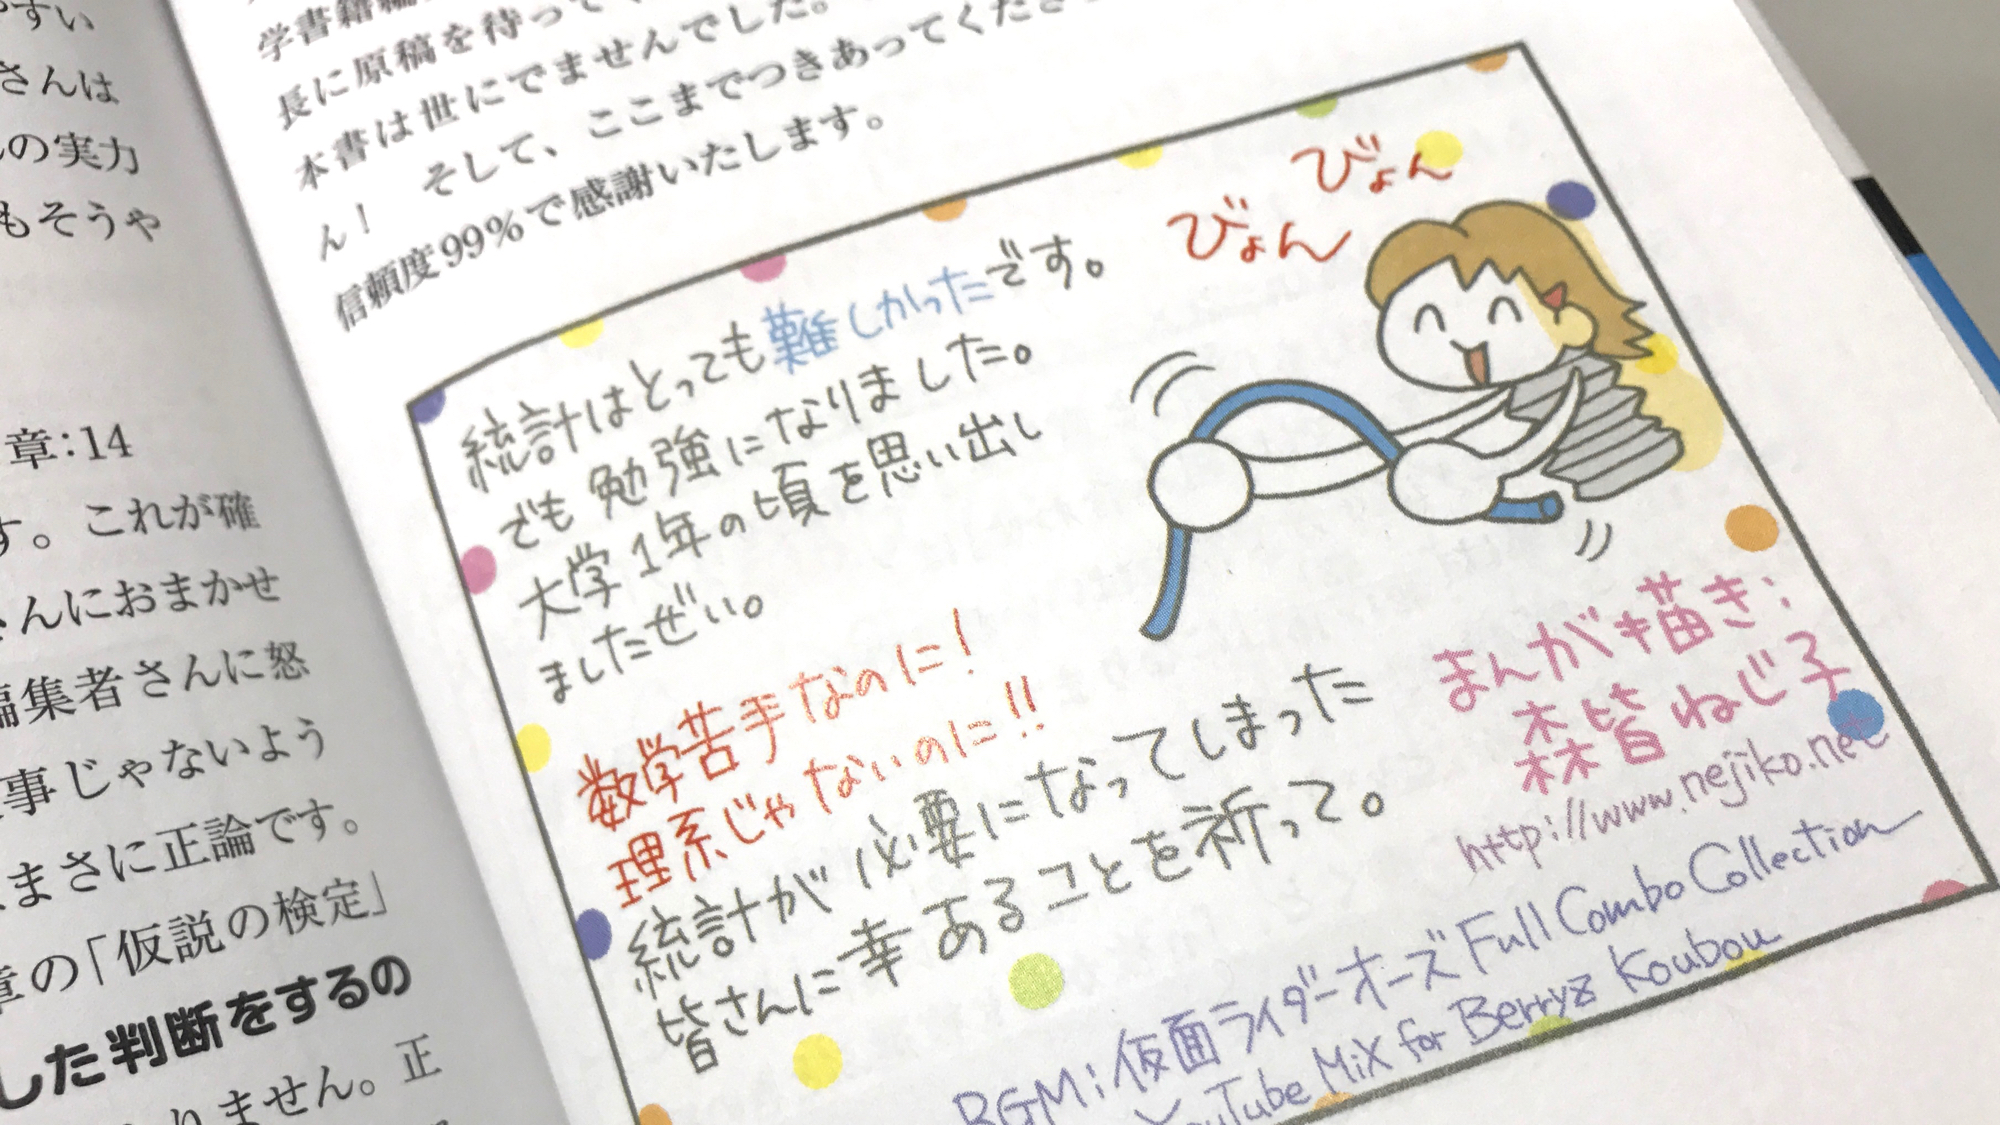 すい
さんは
の実力
もそうや
章:14
す。これが確
さんにおまかせ
編集者さんに怒
事じゃないよう
まさに正論です。
章の「仮説の検定」
した判断をするの
りません。正
学書籍編
長に原稿を待って
本書は世にでませんでした。
ん! そして、ここまでつきあってくださ
信頼度99%で感謝いたします。
びょん
びょん
統計はとっても難しかったです。
でも勉強になりました。
大学1年の頃を思い出し
ましたぜい。
数学苦手なのに!
理系じゃないのに!!
統計が必要になってしまった
皆さんに幸あることを祈って。
まんが描き:
森皆ねじ子
http://www.nejiko.net
BGM:仮面ライダーオーズ Full Combo Collection
YouTube MiX for Berryz Koubou